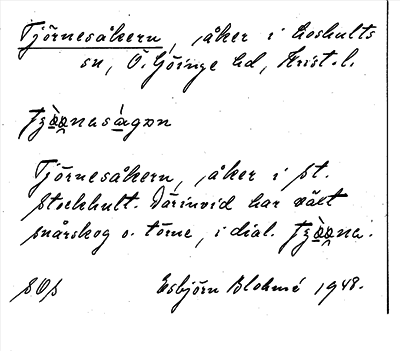 Tjörnesåkern, åker i Loshults
sn, Ö. Göinge hd, Krist. l.
Tjörnesåkern, åker i st.
Stockhult. Därinvid har växt
snårskog o. törne, i dial.
SOs Esbjörn Blohmé 1948.